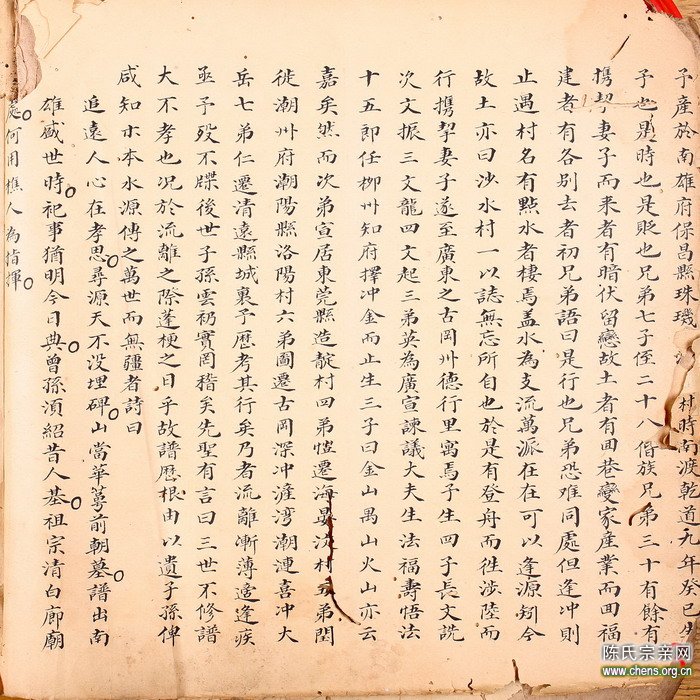 子產於南雄府保昌縣珠璣 村時南渡乾道九年癸巳生
子也是時也是貶也兄弟七子侄二十八偕族兄弟三十有餘有
携挈妻子而來者有暗伏留戀故土者有回巷變家産業而回福
建者有各别去者初兄弟語曰是行也兄弟恐难同處但逢冲則
止遇村名有點水者棲焉盖水為支流萬派在在可以逢源矧今
故土亦曰沙水村一以誌無忘所自也於是有登舟而徃涉陸而
行携挈妻子遂至廣東之古岡州德行里寓焉子生四子長文説
次文振三文龍四文起三弟英為廣宣諫議大夫生法福壽悟法
十五郎任柳州知府擇冲金而止生三子曰金山禺山火山亦云
嘉矣然而次弟宣居東莞縣造靛村四弟愷遷海晏沙村五弟閏
徙潮州府潮陽縣洛陽村六弟圖遷古岡深冲漄湾潮連喜冲大
岳七弟仁遷清遠縣城裏予歷考其行矣乃者流離漸薄邅逢疾
亟予歿不牒後世子孫雲礽實罔稽矣先聖有言曰三世不修譜
大不孝也况於流離之際蓬梗之日乎故譜歷根由以遺子孫俾
咸知木本水源傳之萬世而無疆者詩曰
追遠人心在孝思尋源天不没埋碑山當華蕚前朝墓譜出南
雄盛世時祀事猶明今日典曾孫須紹昔人基祖宗清白廊廟
處何用樵人為指揮
陈氏宗亲网
www.chens.org.cn